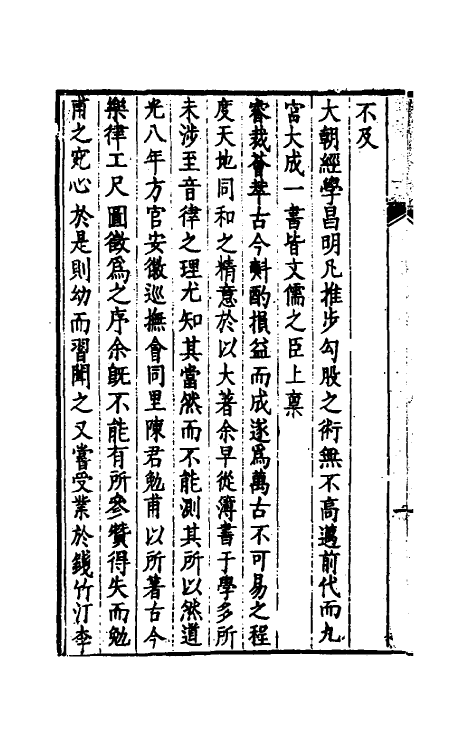 不及
大朝經學昌明凡推步勾股之術無不高邁前代而九
宮大成一書皆文儒之臣上稟
睿裁薈萃古今斟酌損益而成遂為萬古不可易之程
度天地同和之精意於以大著余早從簿書于學多所
未涉至音律之理尤知其當然而不能測其所以然道
光八年方官安徽巡撫會同里陳君勉甫以所著古今
樂律工尺圖徵為之序余旣不能有所參贊得失而勉
甫之究心於是則幼而習聞之又嘗受業於錢竹汀李
一